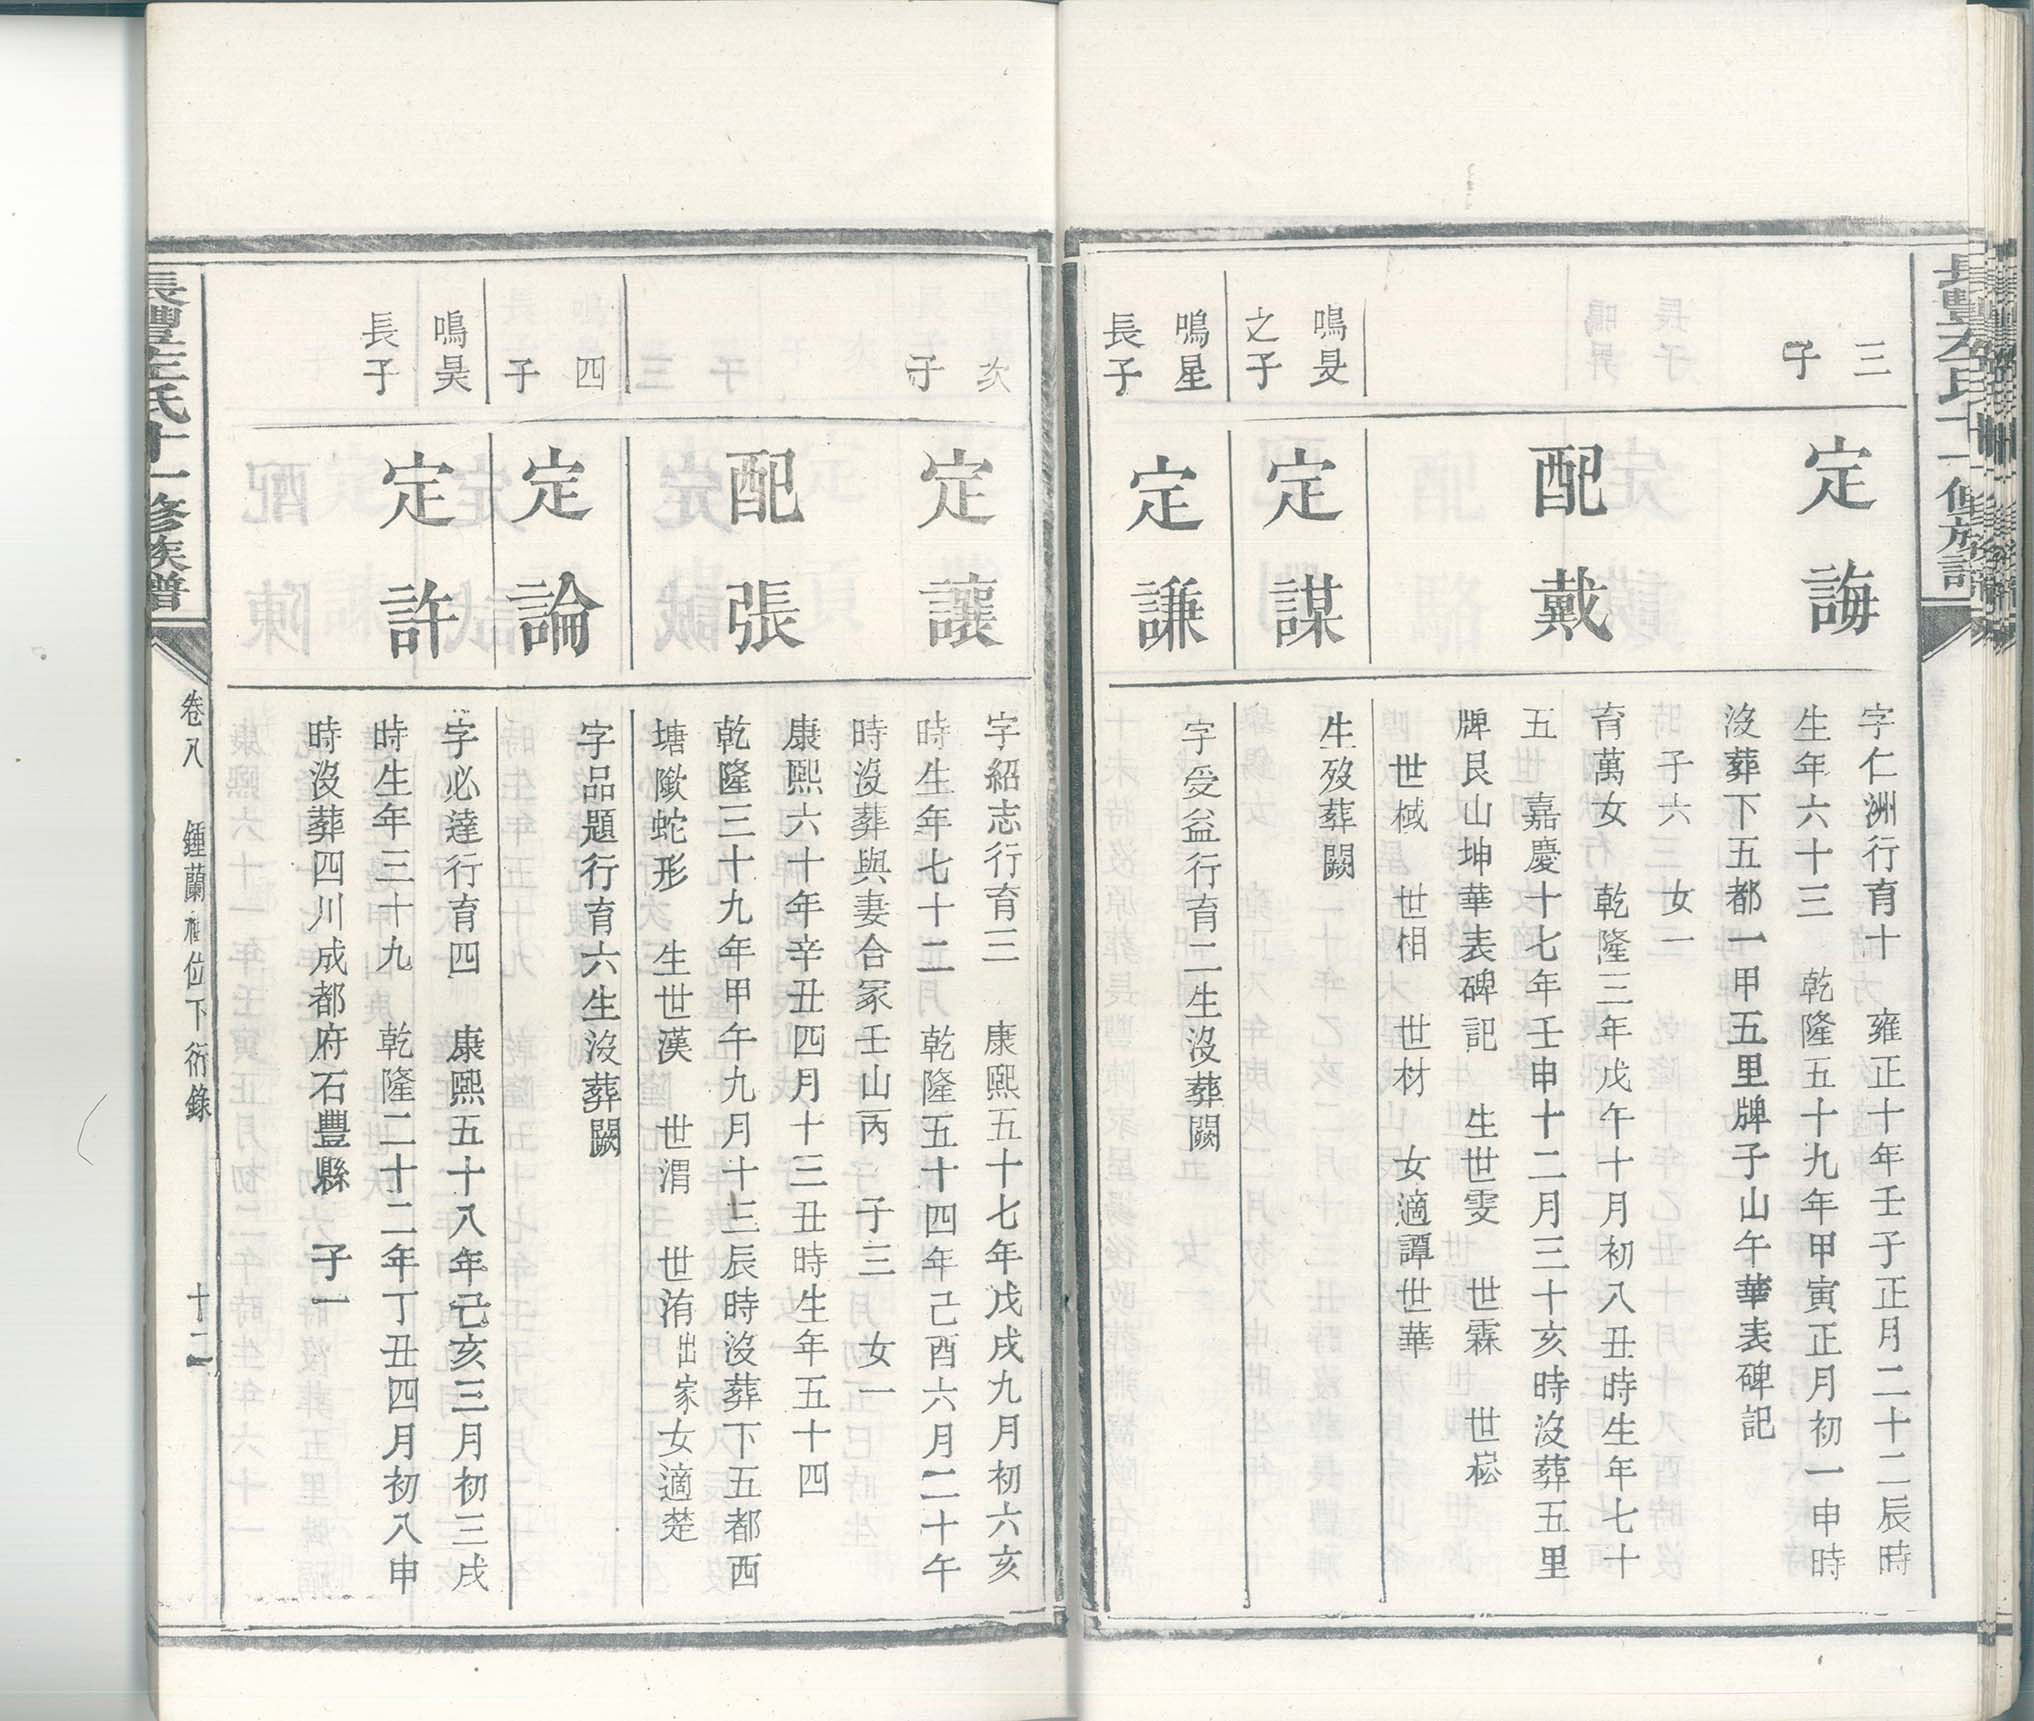 三子
定誨
字仁洲行育十　雍正十年壬子正月二十二辰時
生年六十三　乾隆五十九年甲寅正月初一申時
沒葬下五都一甲五里牌子山午華表碑記
子六　女一
配戴
育萬女　乾隆三年戊午十月初八丑時生年七十
五　嘉慶十七年壬申十二月三十亥時沒葬五里
牌艮山坤華表碑記　生世雯　世霖　世崧
世棫　世相　世材　女適譚世華
鳴旻之子
定謀
生歿葬闕
鳴星長子
定謙
字受益行育二生沒葬闕
次子
定讓
字紹志行育三　康熙五十七年戊戌九月初六亥
時生年七十二　乾隆五十四年己酉六月二十午
時沒葬與妻合冢壬山丙　子三　女一
配張
康熙六十年辛丑四月十三丑時生年五十四
乾隆三十九年甲午九月十三辰時沒葬下五都西
塘蛇形　生世漢　世渭　世洧出家女適楚
四子
定論
字品題行育六生沒葬闕
鳴昊長子
定許
字必達行育四　康熙五十八年己亥三月初三戌
時生年三十九　乾隆二十二年丁丑四月初八申
時沒葬四川成都府石豐縣　子一
長豐左氏十一修族譜
卷八　鍾蘭位下衍錄　十二